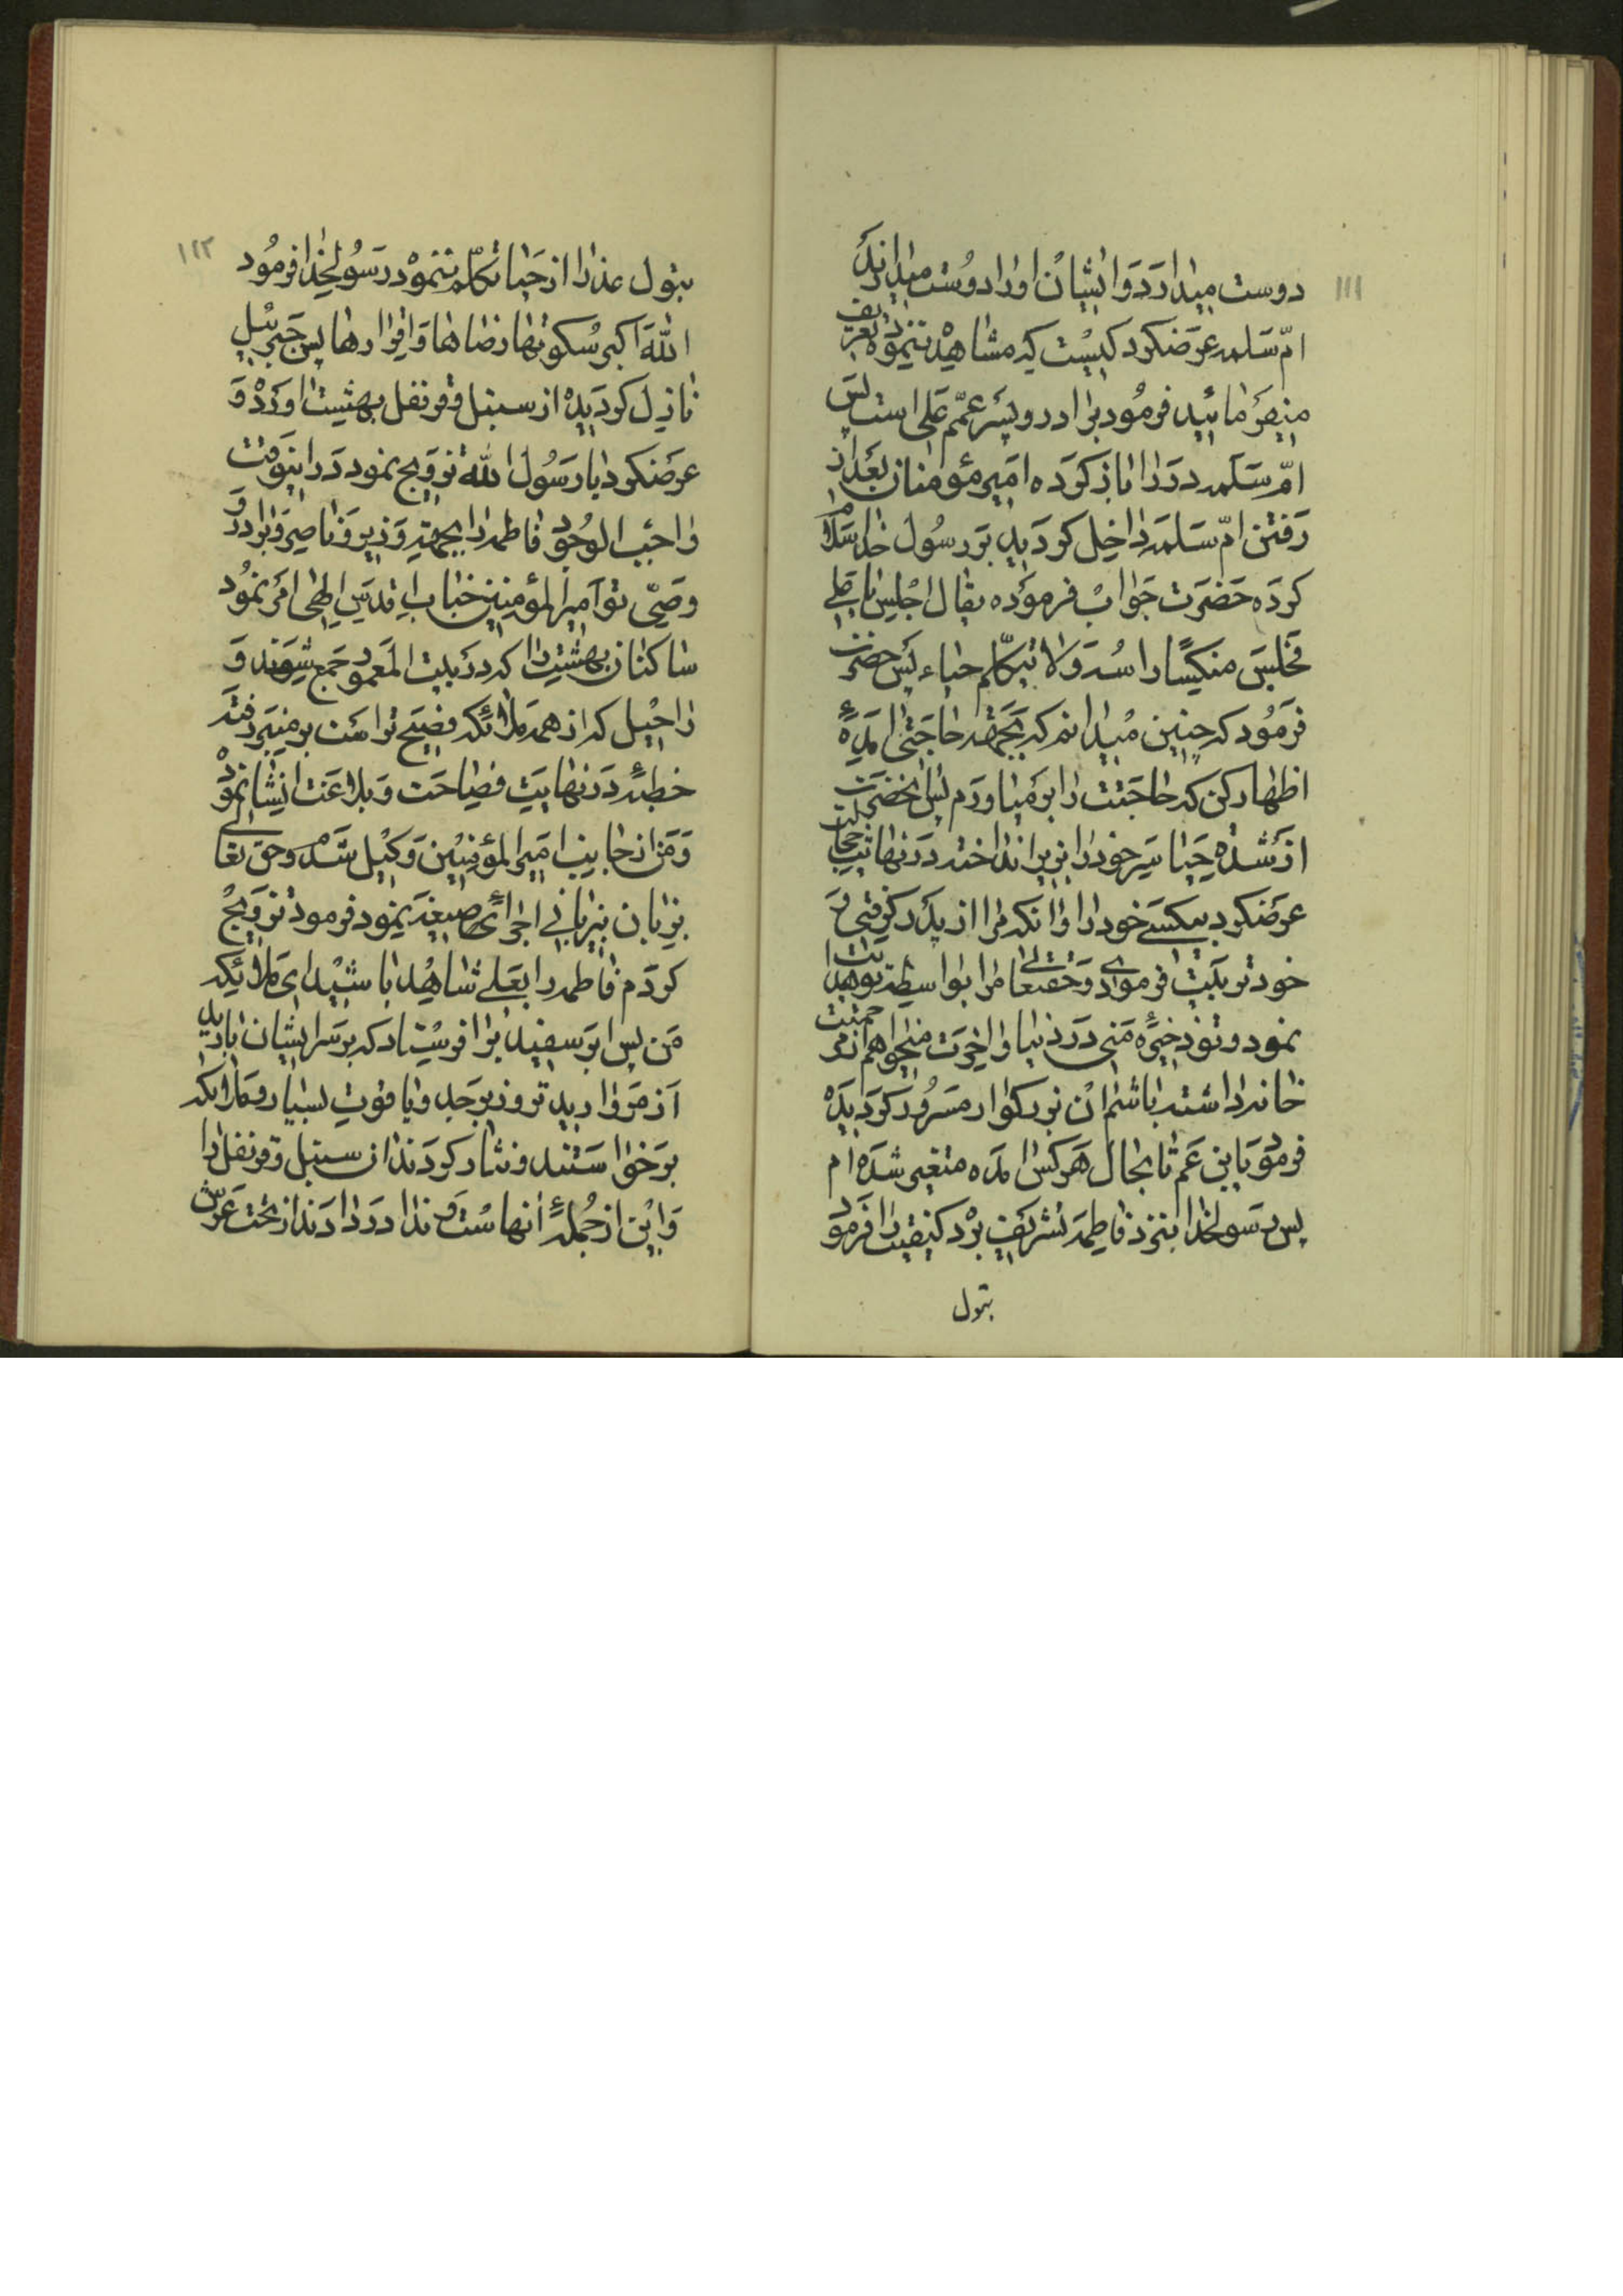 ١١١
دوست میدارد و ایشان او را دوست میدارند
امّ سلمه عرضکرد کیست که مشاهده ننموده تعریف
میفرمائید فرمود برادر و پسر عمّم علی است پس
امّ سلمه در را باز کرده امیر مؤمنان بعد از
رفتن امّ سلمه داخل کردیده بر رسول خدا سلام
کرده حضرت جواب فرموده بقال اجلس یا علی
فجلس منکسًا راسه ولا یتکلّم حیاء پس حضرت
فرمود که چنین میدانم که بجهة حاجتی آمدهٔ
اظهار کن که حاجتت را برمیاورم پس انحضرت
از شدة حیا سر خود را بزیر انداخته در نهایت خجالت
عرضکرد بیکسی خود را و انکه مرا از پدر کرفتی و
خود تربیت فرمودی و حقتعالی مرا بواسطه تو هدایت
نمود و تو ذخیرهٔ منی در دنیا و اخرت میخواهم از مرحمتت
خانه داشته باشم ان بزرکوار مسرور کردیده
فرمود یابن عم تا بحال هر کس امده متغیر شده ام
پس رسولخدا بنزد فاطمه تشریف برد کیفیت را فرمود
بتول
١١٢
بتول عذرا از حیا تکلّم ننمود رسولخدا فرمود
الله اکبر سکوتها رضاها و اقرارها پس جبرئیل
نازل کردیده از سنبل و قرنفل بهشت اورد و
عرضکرد یا رسول الله تزویج نمود در اینوقت
واجب الوجود فاطمه را بجهة وزیر و ناصر و برادر و
وصیّ تو امیر المؤمنین جناب اقدس الهی امر نمود
ساکنان بهشت را که در بیت المعمور جمع شوند و
راحیل که از همه ملائکه فصیح تر است بر منبر رفته
خطبهٔ در نهایت فصاحت و بلاغت انشا نمود
و من از جانب امیر المؤمنین وکیل شدم و حق تعالی
بزبان بیزبانی اجرای صیغه بنمود فرمود تزویج
کردم فاطمه را بعلی شاهد باشید ای ملائکه
من پس ابر سفید را فرستاد که بر سر ایشان بارید
از مروارید تر و زبرجد و یاقوت بسیار و ملائکه
برخواستند و نثار کردند از سنبل و قرنفل را
و این از جملهٔ انهاست و ندا در دادند از تحت عرش